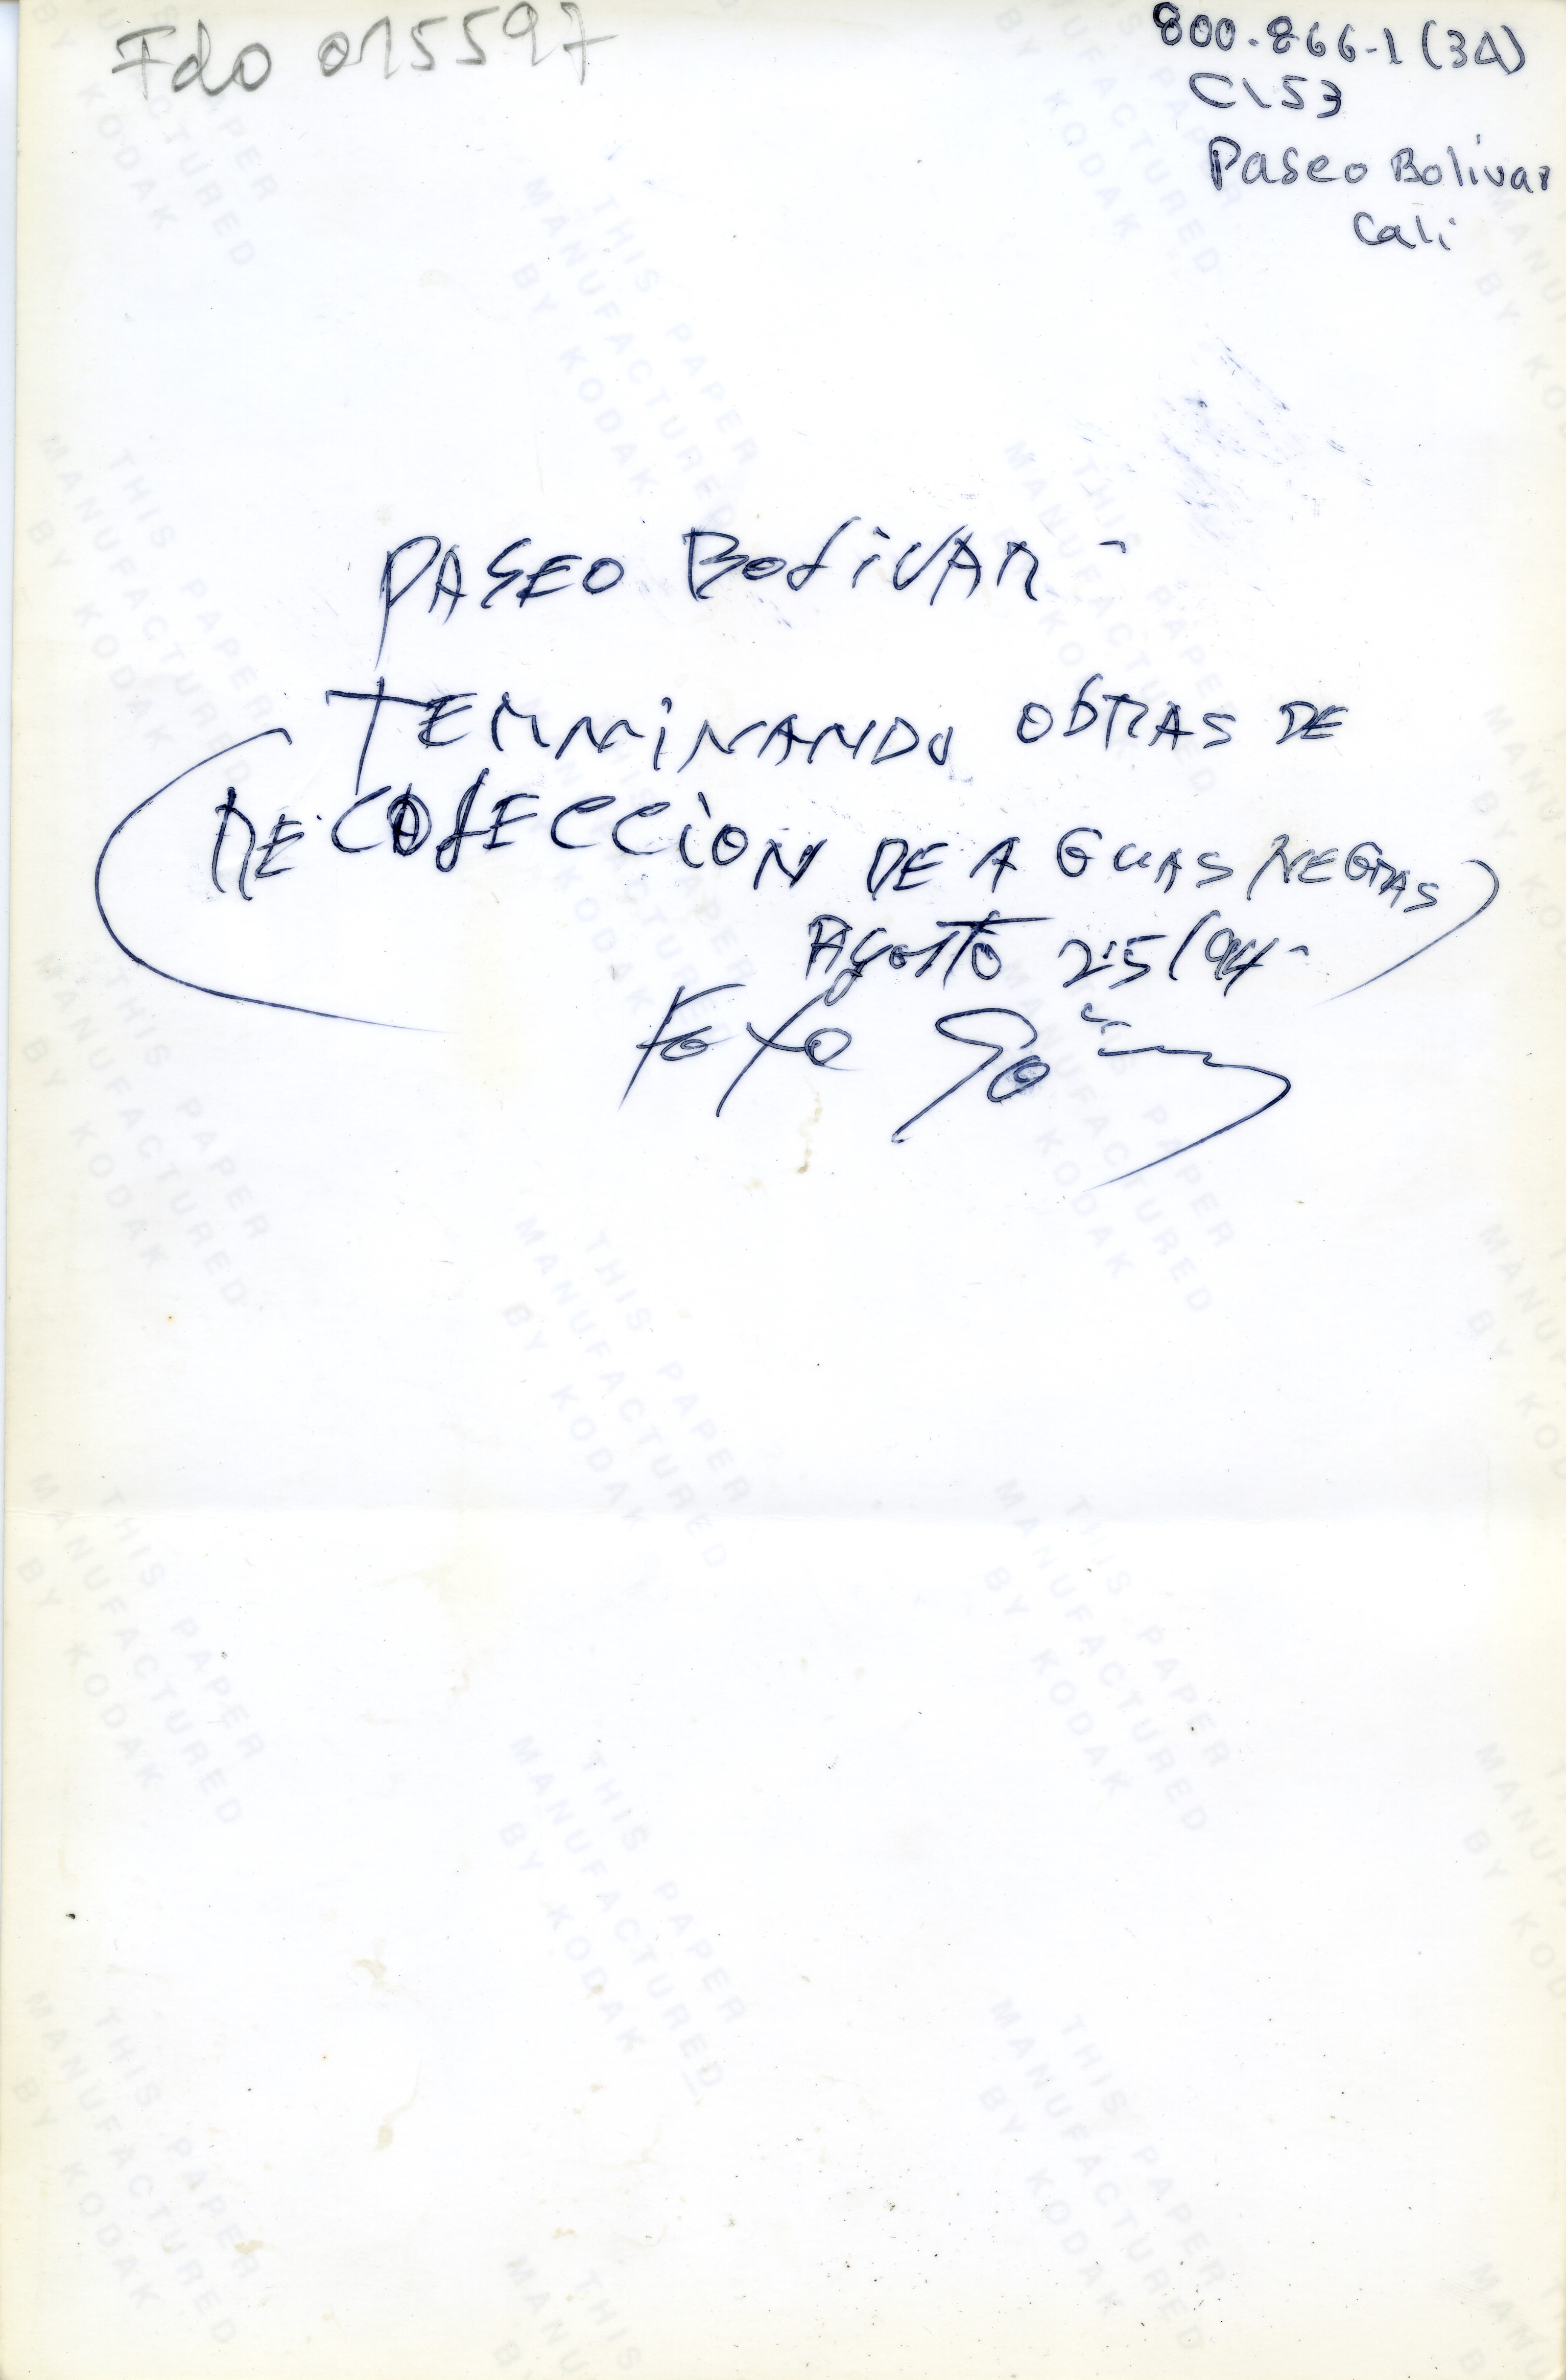 Fdo 015597
800-866-1 (3A)
C153
Paseo Bolivar
Cali
PASEO BOLIVAR-
TERMINANDO OBRAS DE
RECOLECCION DE AGUAS NEGRAS
AGOSTO 25/94-
Foto
THIS PAPER
MANUFACTURED
BY KODAK